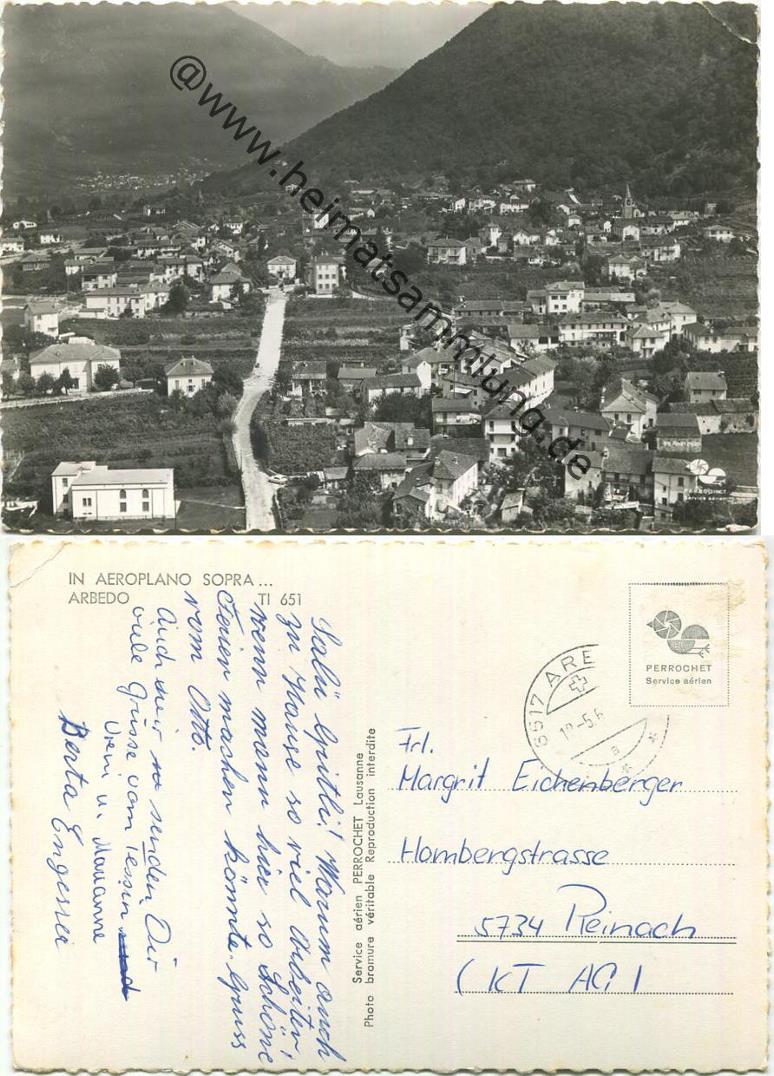 @www.heimatsammlung.de
PERROCHET
Service aérien
IN AEROPLANO SOPRA ...
ARBEDO TI 651
Salü Gritli! Warum auch
zu Hause so viel Arbeiten,
wenn mann hier so schöne
Ferien machen könnte. Gruss
vom Otto.
Auch wir senden Dir
viele Grüsse vom Tessin
Vreni u. Marianne
Berta
Service aérien PERROCHET Lausanne
Photo bromure véritable Reproduction interdite
PERROCHET
Service aérien
6517 ARBE
Frl.
Margrit Eichenberger
Hombergstrasse
5734 Reinach
(KT AG)